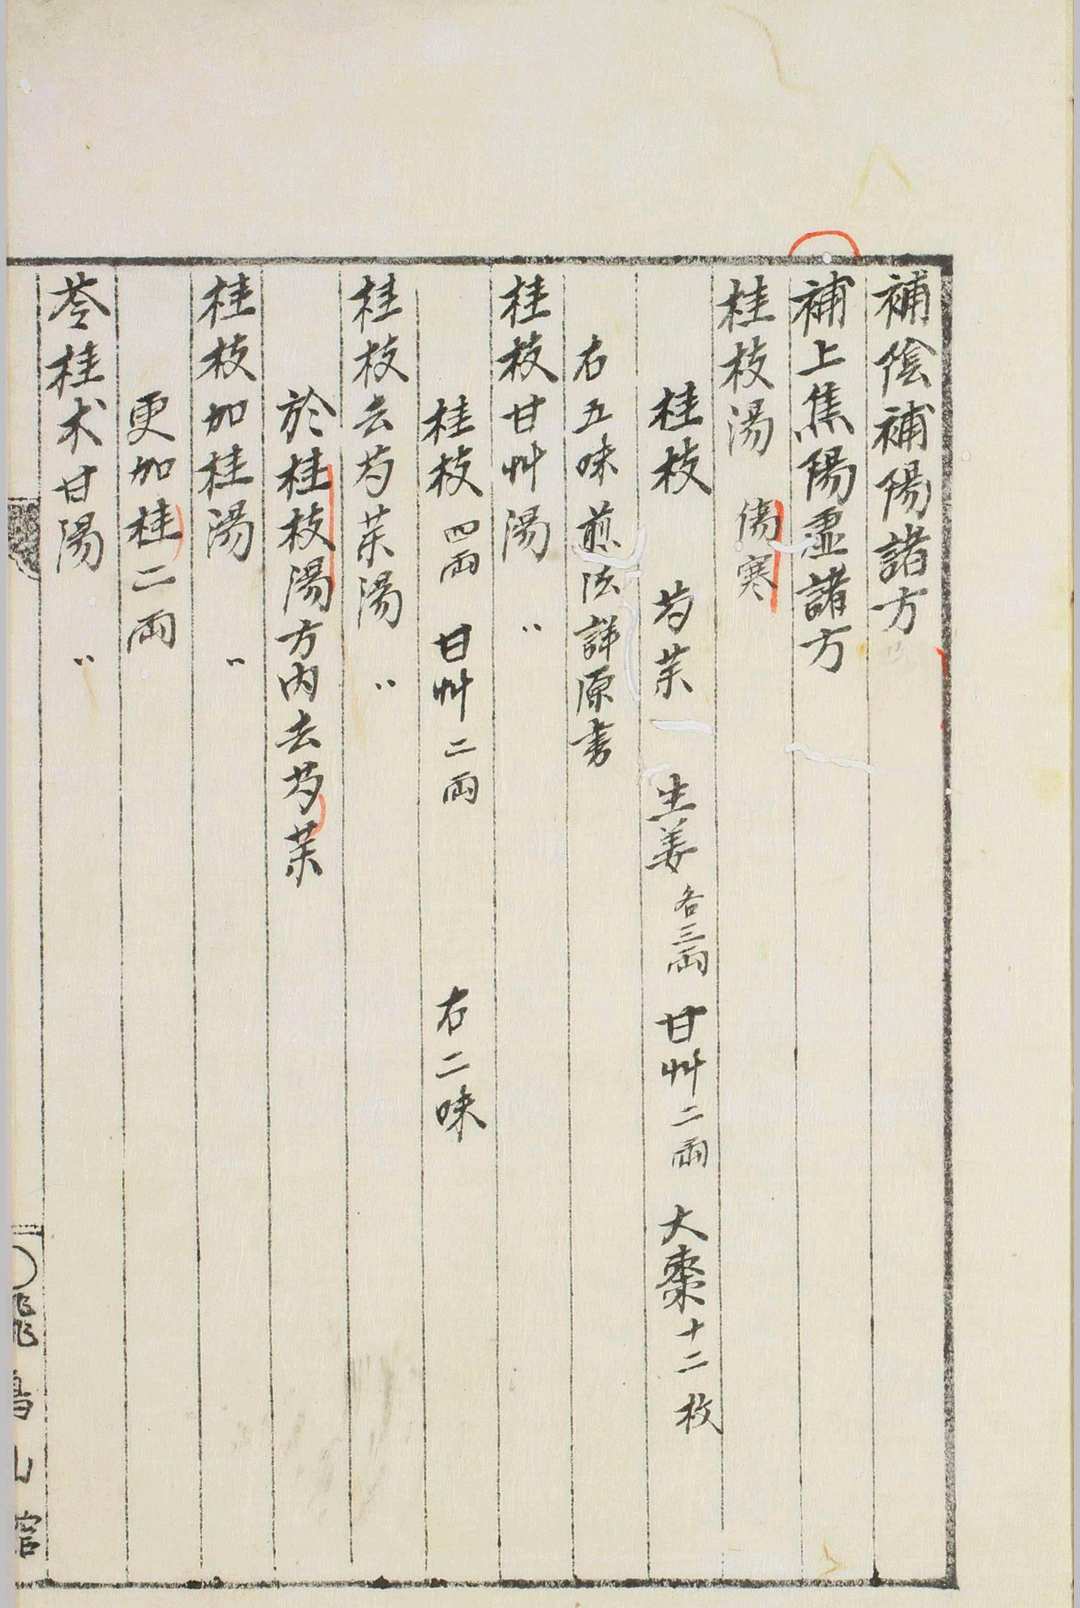 補陰補陽諸方
補上焦陽虛諸方
桂枝湯 傷寒
桂枝 芍藥 生姜各三兩 甘艸二兩 大棗十二枚
右五味煎法詳原書
桂枝甘艸湯 〃
桂枝四兩 甘艸二兩 右二味
桂枝去芍藥湯 〃
於桂枝湯方内去芍藥
桂枝加桂湯 〃
更加桂二兩
苓桂朮甘湯 〃
飛鳥山館